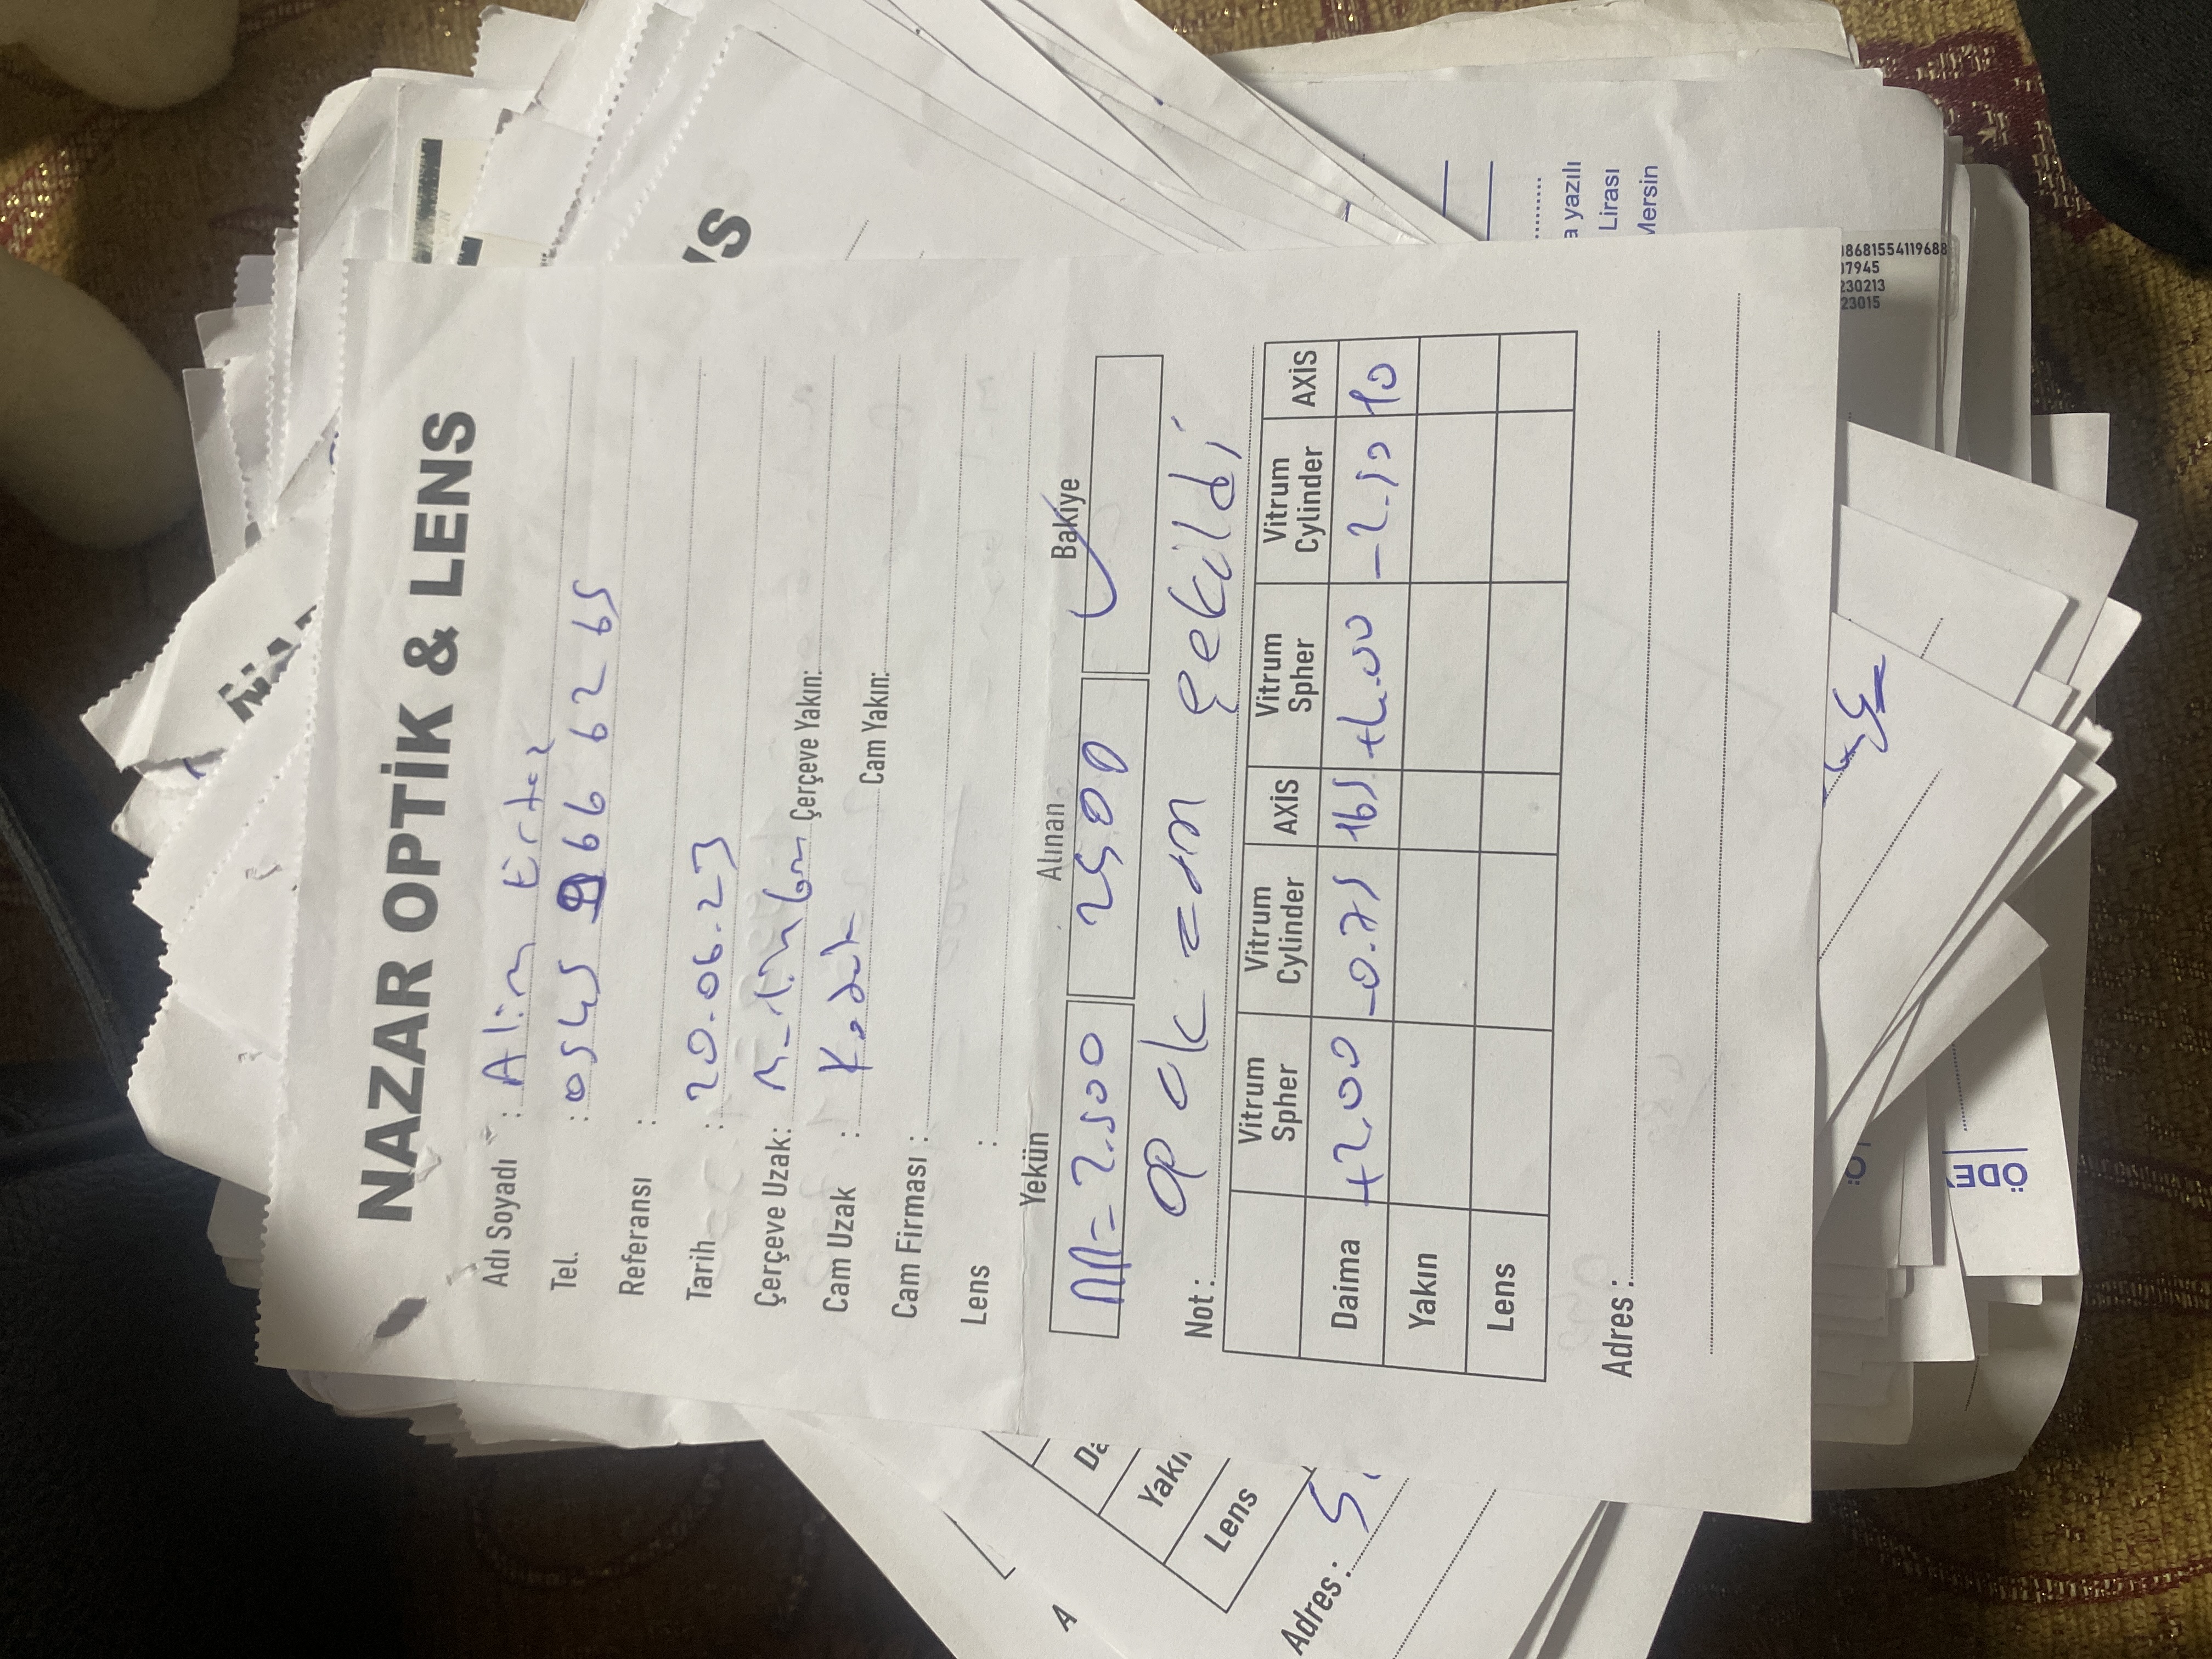 NAZAR OPTİK & LENS
Adı Soyadı : Alim Ertaz
Tel. : 0545 966 62 65
Referansı :
Tarih : 20.06.23
Çerçeve Uzak: Çerçeve Yakın:
Cam Uzak : Kodak Cam Yakın:
Cam Firması :
Lens :
Yekün Alınan Bakiye
= 2.500 2500
Not : çekildi
Vitrum Spher Vitrum Cylinder AXİS Vitrum Spher Vitrum Cylinder AXİS
Daima +2.00 -0.75 165 +4.00 -2.50 10
Yakın
Lens
Adres :
NA
IS
A
Da
Yakı
Lens
Adres : S.
a yazılı
Lirası
Mersin
ÖDE
8681554119688
7945
230213
23015